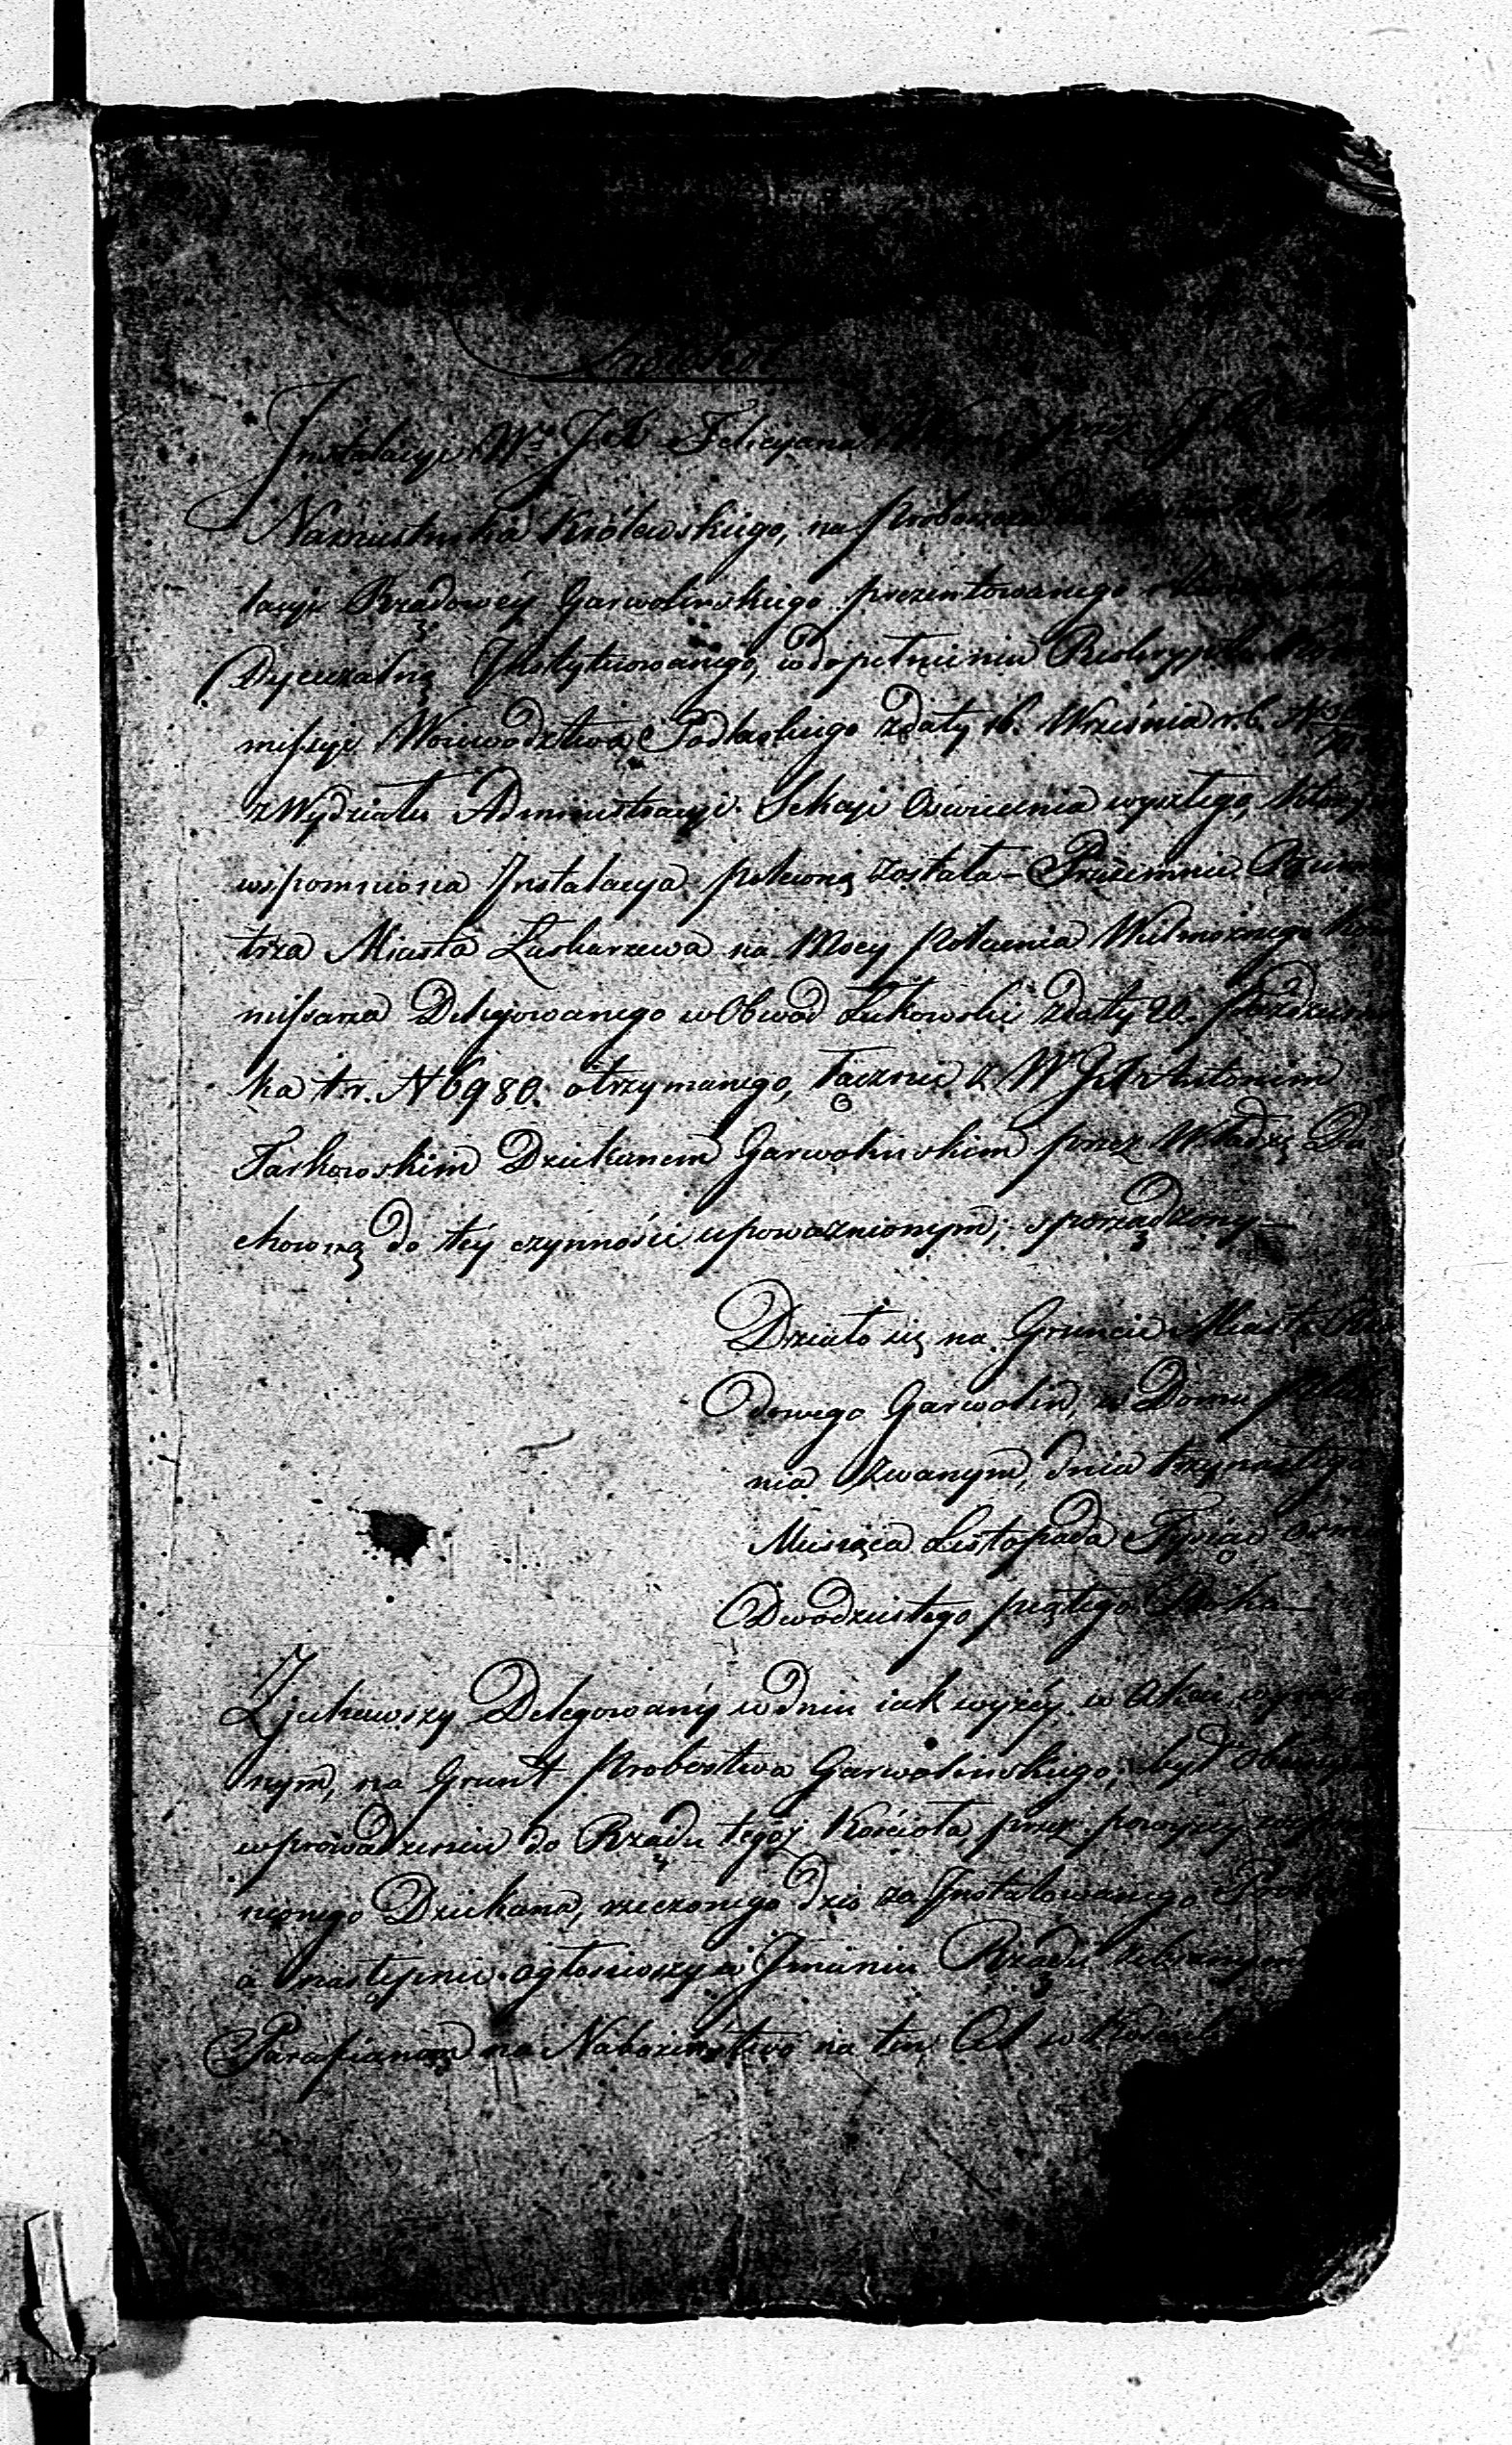 Protokół
Instalacyi Wo JX Felicyana przez J. O.
Namiestnika Królewskiego, na Probostwo
lacyi Rządowéy Garwolinskiego prezentowanego
Dyecezalną Instytuowanego, w dopełnieniu Reskryptu Kom
missyi Woiewodztwa Podlaskiego z daty 16. Września r. b. N
z Wydziału Administracyi Sekcyi Oswiecenia wyszłego, którym
wspomniona Instalacya poleconą została – Przezemnie Burmi
trza Miasta Łaskarzewa na Mocy Polecenia Wielmożnego Kom
missarza Delegowanego w Obwód Łukowski z daty 20. Paźdźierni
ka t. r. N 6980. otrzymanego, łącznie z W JX Antonim
Tarkowskim Dziekanem Garwolinskim przez Władzę Du
chowną do téy czynności upoważnionym; sporządzony –
Działo się na Gruncie Miasta Rzą
dowego Garwolin, w Domu Pleba
nia zwanym, dnia trzynastego
Miesiąca Listopada Tysiąc osm
Dwodziestego piątego Roku –
Zjechawszy Delegowany w dniu iak wyżéy w Akcie wyrażo
nym, na Grunt Probostwa Garwolinskiego, był Obecnym
wprowadzeniu do Rządu tegoż Kościoła, przez powyżéy wspom
nionego Dziekana, rzeczonego dziś za Instalowanego Prob
a następnie ogłosiwszy w Imieniu Rządu zebranym
Parafianom na Nabożeństwo na ten Cel w Kościele